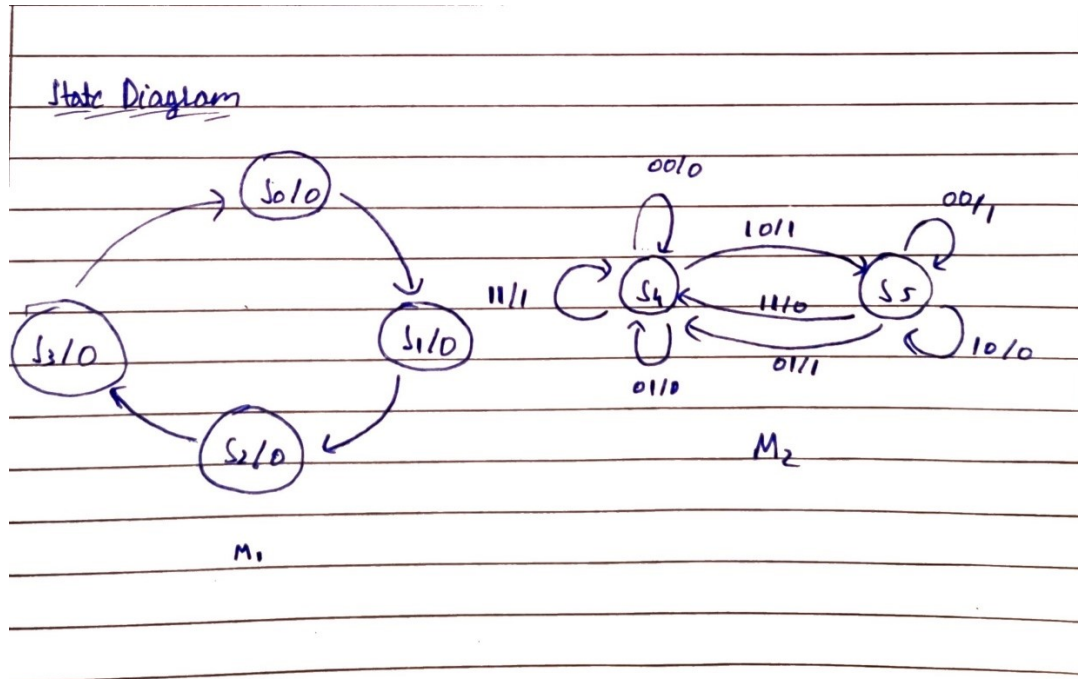 State Diagram
S0/0
S1/0
S2/0
S3/0
M1
00/0
10/1
00/1
11/1
S4
11/0
S5
01/1
10/0
01/0
M2